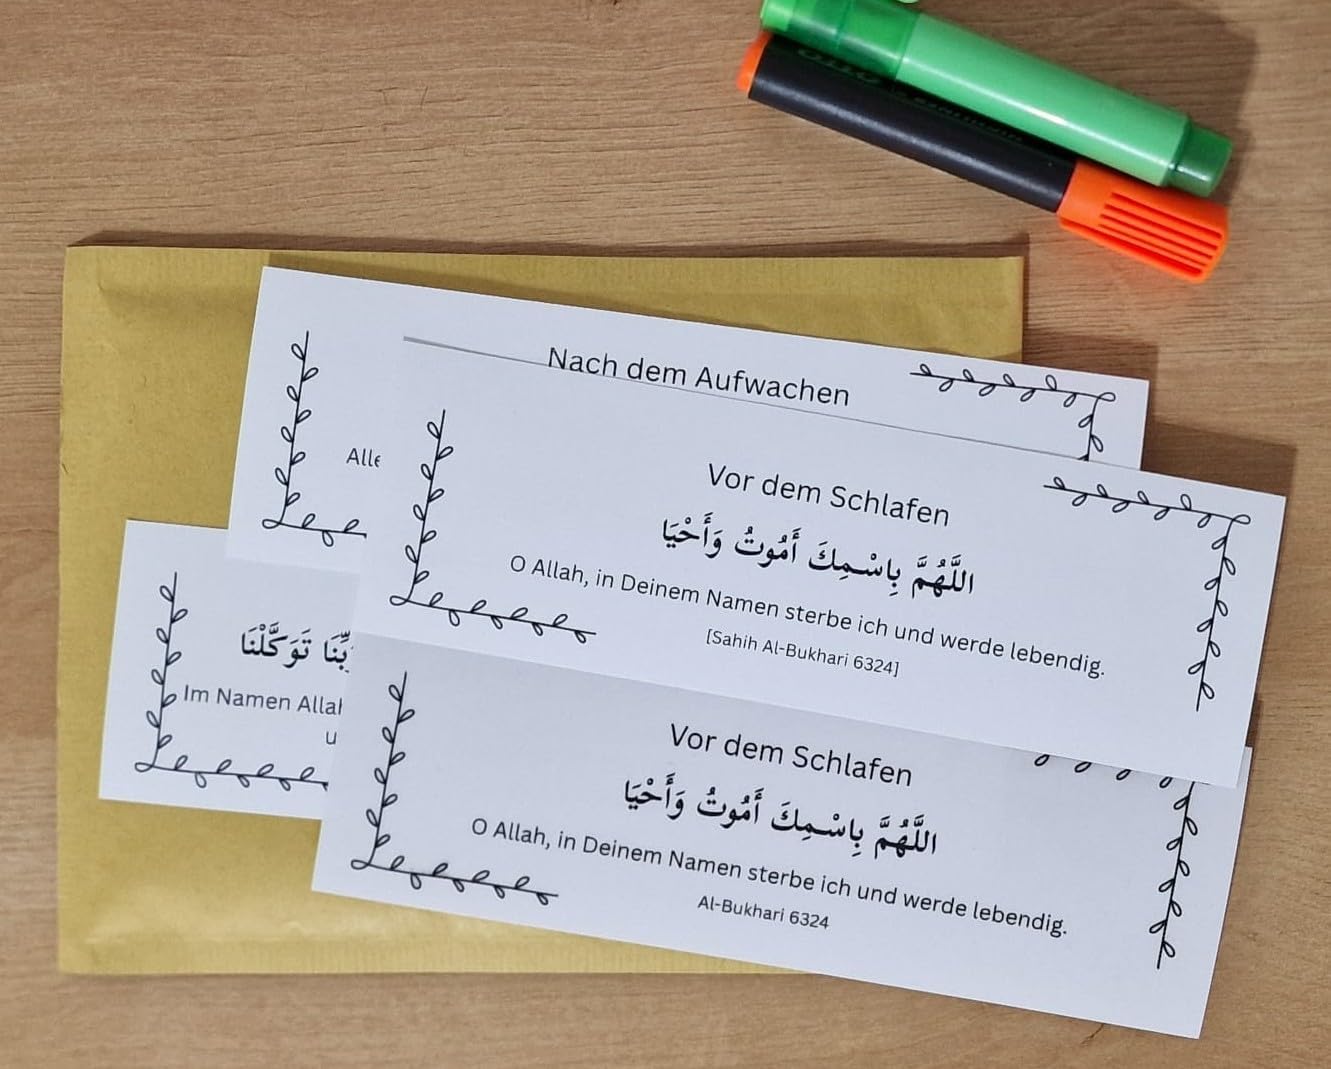 Nach dem Aufwachen
Alle
Vor dem Schlafen
اللَّهُمَّ بِاسْمِكَ أَمُوتُ وَأَحْيَا
O Allah, in Deinem Namen sterbe ich und werde lebendig.
[Sahih Al-Bukhari 6324]
رَبِّنَا تَوَكَّلْنَا
Im Namen Allah
u
Vor dem Schlafen
اللَّهُمَّ بِاسْمِكَ أَمُوتُ وَأَحْيَا
O Allah, in Deinem Namen sterbe ich und werde lebendig.
Al-Bukhari 6324